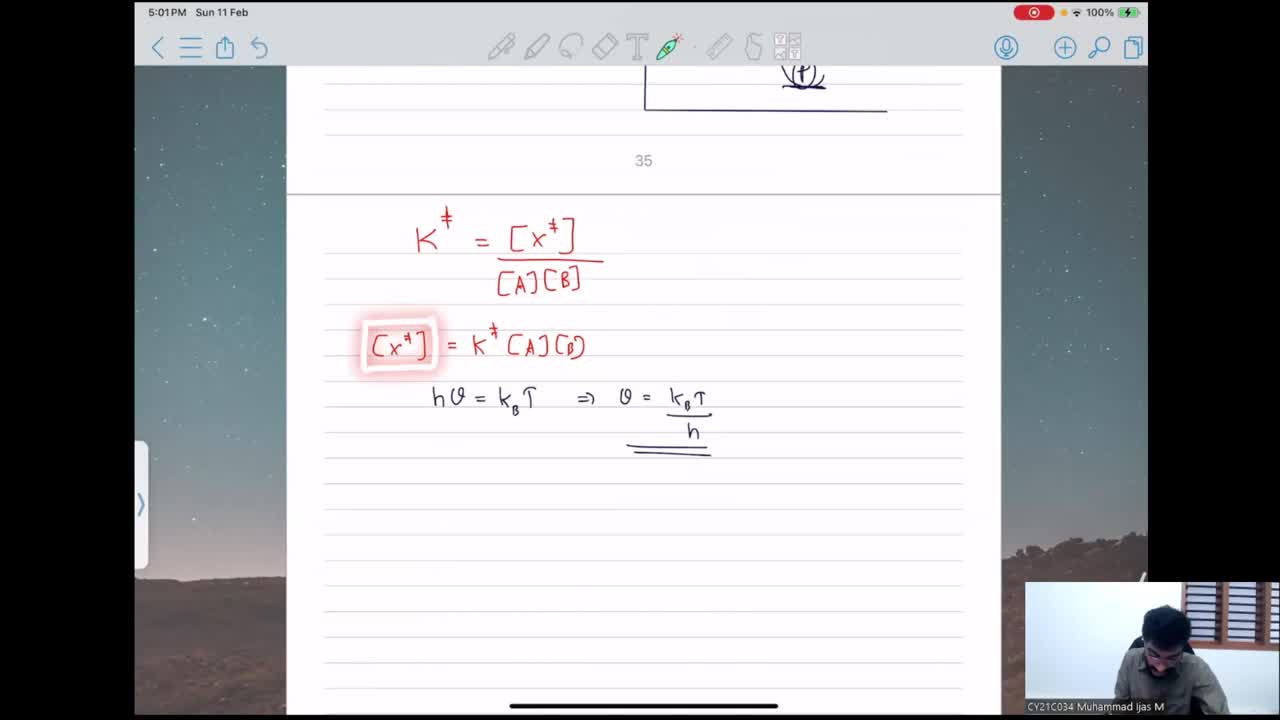 5:01 PM Sun 11 Feb
100%
T
(P)
35
K‡ = [X‡]
[A][B]
[X‡] = K‡ [A][B]
hϑ = k_B T ⇒ ϑ = k_B T
h
CY21C034 Muhammad Ijas M